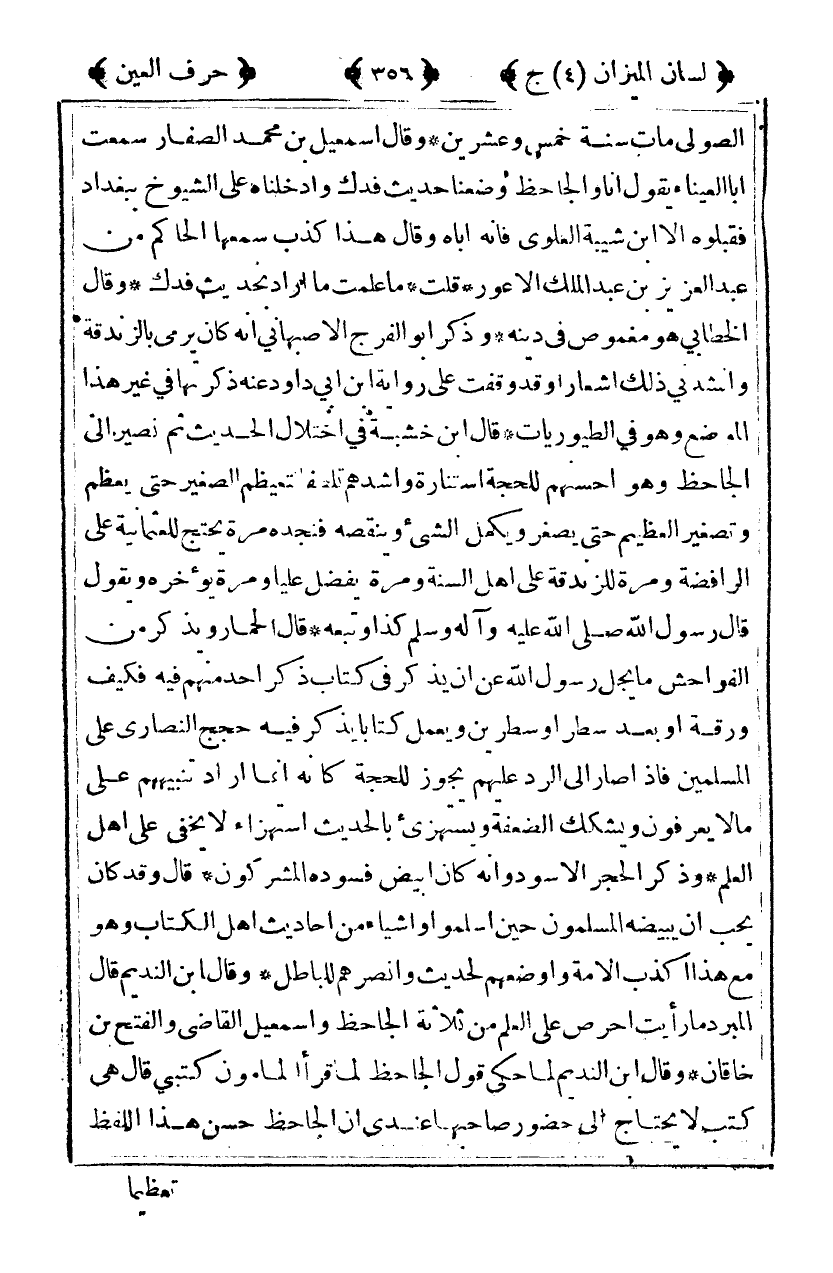 ﴿ لسان الميزان (٤) ج ﴾ ﴿ ٣٥٦ ﴾ ﴿ حرف العين ﴾
الصولى مات سنة خمس وعشرين*وقال اسمعيل بن محمد الصفار سمعت
ابا العيناء يقول انا والجاحظ وضعنا حديث فدك وادخلناه على الشيوخ ببغداد
فقبلوه الا ابن شيبة العلوى فانه اباه وقال هذا كذب سمعها الحاكم من
عبد العزيز بن عبد الملك الاعور*قلت*ما علمت ما اراد بحديث فدك*وقال
الخطابي هو مغموص فى دينه*وذكر ابو الفرج الاصبهاني انه كان يرمى بالزندقة
وانشد في ذلك اشعارا وقد وقفت على رواية ابن ابي داود عنه ذكرتها في غير هذا
الموضع وهو في الطيوريات*قال ابن خشبة في اختلال الحديث ثم نصير الى
الجاحظ وهو احسنهم للحجة استنارة واشدهم تلطفا لتعظيم الصغير حتى يعظم
وتصغير العظيم حتى يصغر ويكمل الشئ وينقصه فنجده مرة يحتج للعثمانية على
الرافضة ومرة للزندقة على اهل السنة ومرة يفضل عليا ومرة يؤخره ويقول
قال رسول الله صلى الله عليه وآله وسلم كذا وتبعه*قال الجماز ويذكر من
الفواحش ما يجل رسول الله عن ان يذكر فى كتاب ذكر احد منهم فيه فكيف
ورقة او بعد سطر او سطرين ويعمل كتابا يذكر فيه حجج النصارى على
المسلمين فاذا صار الى الرد عليهم يجوز للحجة كانه انما اراد تنبيههم على
مالا يعرفون ويشكك الضعفة ويستهزئ بالحديث استهزاء لا يخفى على اهل
العلم*وذكر الحجر الاسود وانه كان ابيض فسوده المشركون*قال وقد كان
يجب ان يبيضه المسلمون حين اسلموا واشياء من احاديث اهل الكتاب وهو
مع هذا اكذب الامة واوضعهم لحديث وانصرهم للباطل*وقال ابن النديم قال
المبرد ما رأيت احرص على العلم من ثلاثة الجاحظ واسمعيل القاضى والفتح بن
خاقان*وقال ابن النديم لما حكى قول الجاحظ لما قرأ المامون كتبي قال هى
كتب لا يحتاج الى حضور صاحبها عندى ان الجاحظ حسن هذا اللفظ
تعظيما